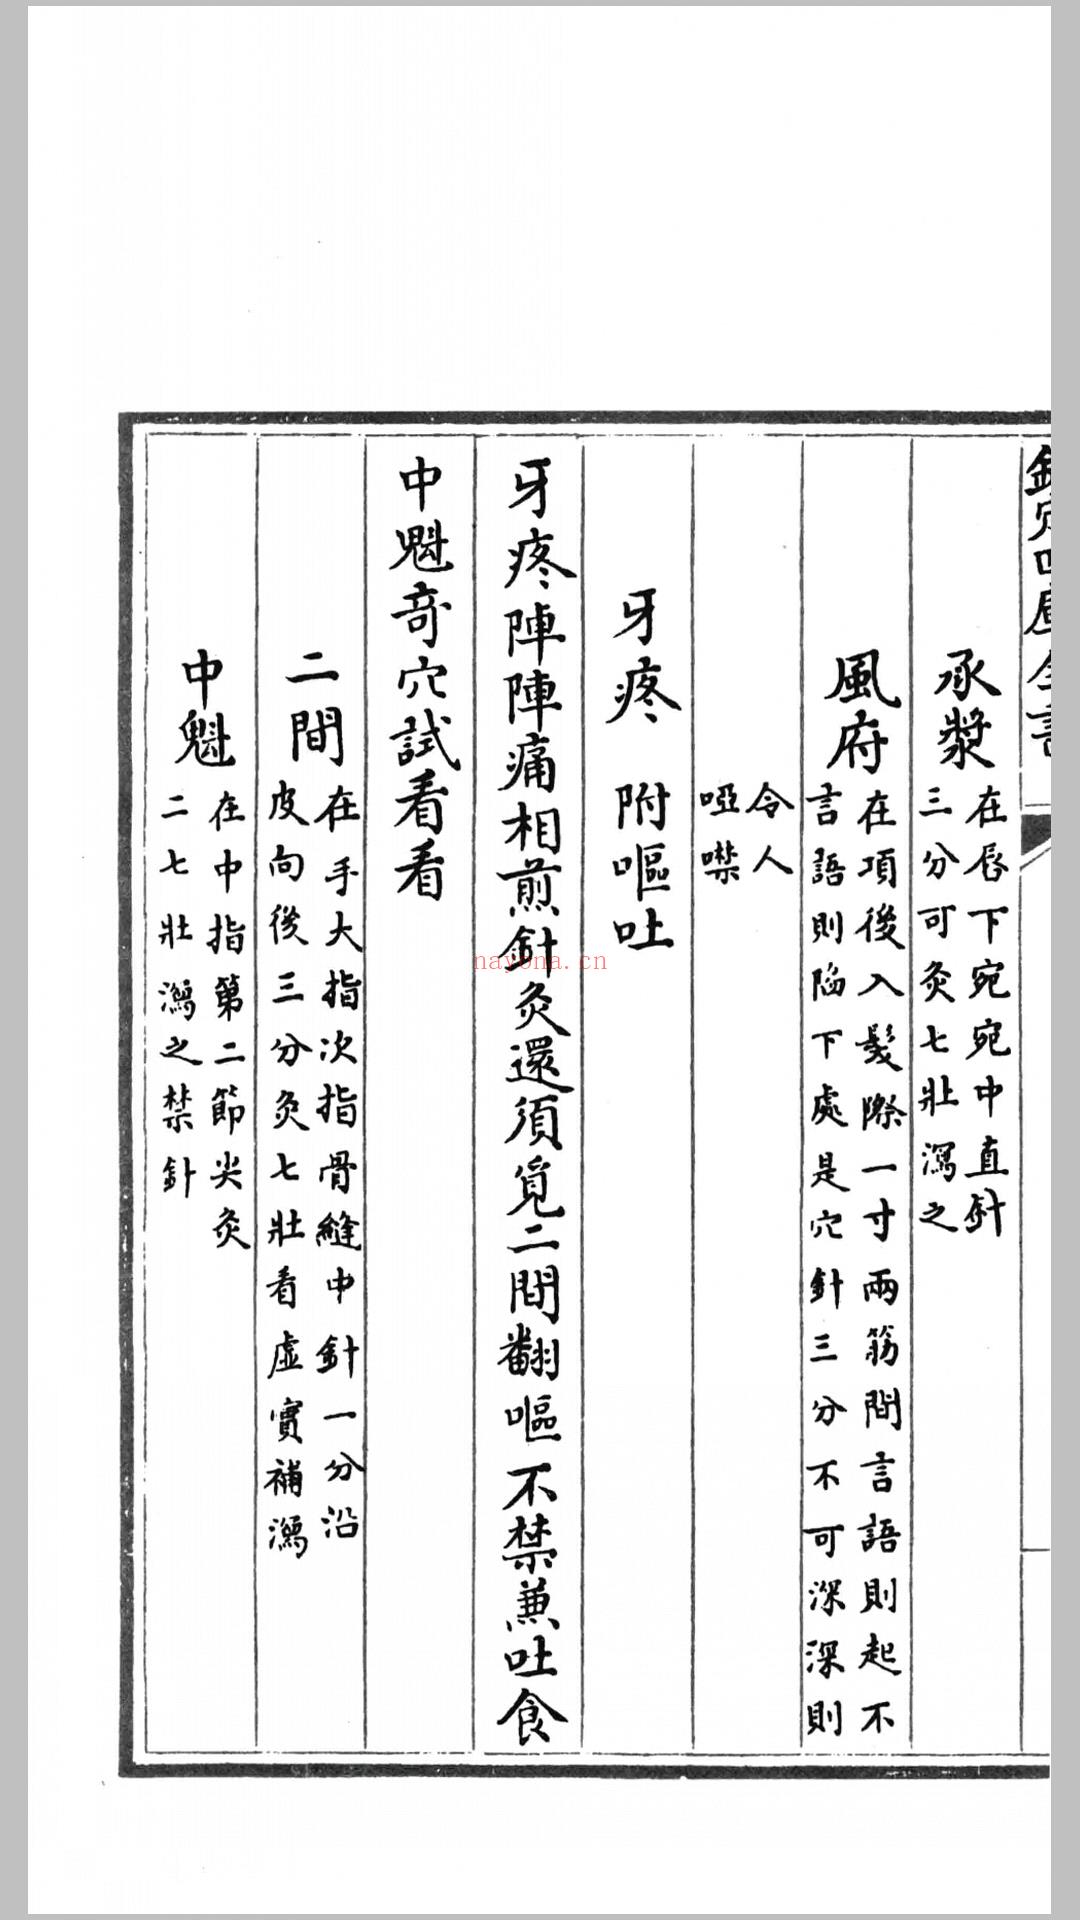 欽定四庫全書
承漿在唇下宛宛中直針
三分可灸七壯瀉之
風府在項後入髮際一寸兩筋間言語則起不
言語則陷下處是穴針三分不可深深則
令人
啞噤
牙疼 附嘔吐
牙疼陣陣痛相煎針灸還須覓二間翻嘔不禁兼吐食
中魁竒穴試看看
二間在手大指次指骨縫中針一分沿
皮向後三分灸七壯看虛實補瀉
中魁在中指第二節尖灸
二七壯瀉之禁針
nayona.cn